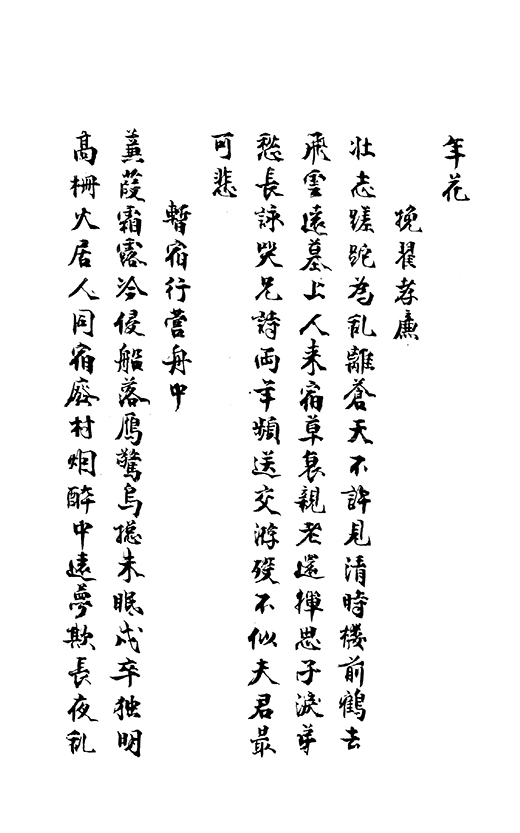 年花
挽翟孝廉
壯志蹉跎為乱離蒼天不許見清時樓前鶴去
飛雲遠墓上人来宿草衰親老還揮思子淚弟
愁長詠哭兄詩両年頻送交游殁不似夫君最
可悲
暫宿行营舟中
蒹葭霜露冷侵船落鴈驚烏揔未眠戍卒独明
高柵火居人同宿廢村烟醉中遠夢欺長夜乱